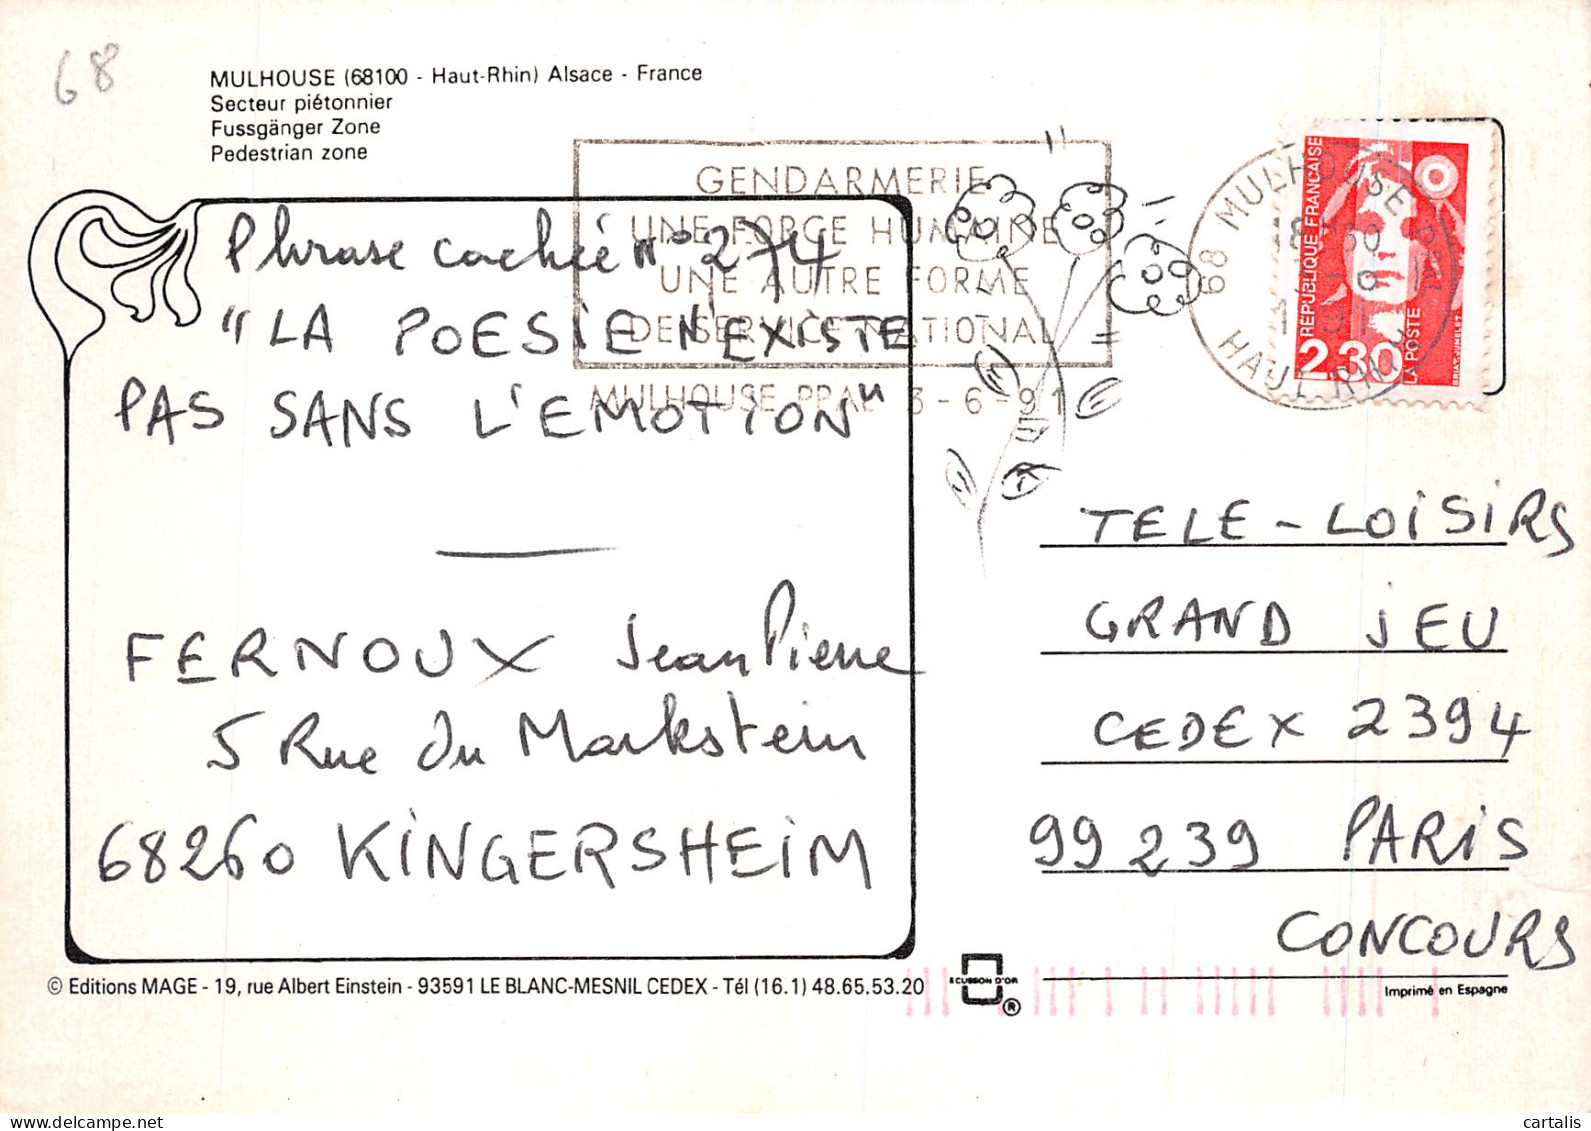 68
MULHOUSE (68100 - Haut-Rhin) Alsace - France
Secteur piétonnier
Fussgänger Zone
Pedestrian zone
GENDARMERIE
UNE FORCE HUMAINE
UNE AUTRE FORME
DE SERVICE NATIONAL
MULHOUSE PPAL 3-6-91
68 MULHOUSE PPAL
HAUT RHIN
RÉPUBLIQUE FRANÇAISE
2,30
LA POSTE
BRIAT-JUMELET
Phrase cachée n° 274
"LA POESIE N'EXISTE
PAS SANS L'EMOTION"
FERNOUX Jean Pierre
5 Rue du Markstein
68260 KINGERSHEIM
TELE-LOISIRS
GRAND JEU
CEDEX 2394
99239 PARIS
CONCOURS
© Editions MAGE - 19, rue Albert Einstein - 93591 LE BLANC-MESNIL CEDEX - Tél (16.1) 48.65.53.20
ECUSSON D'OR
®
Imprimé en Espagne
cartalis